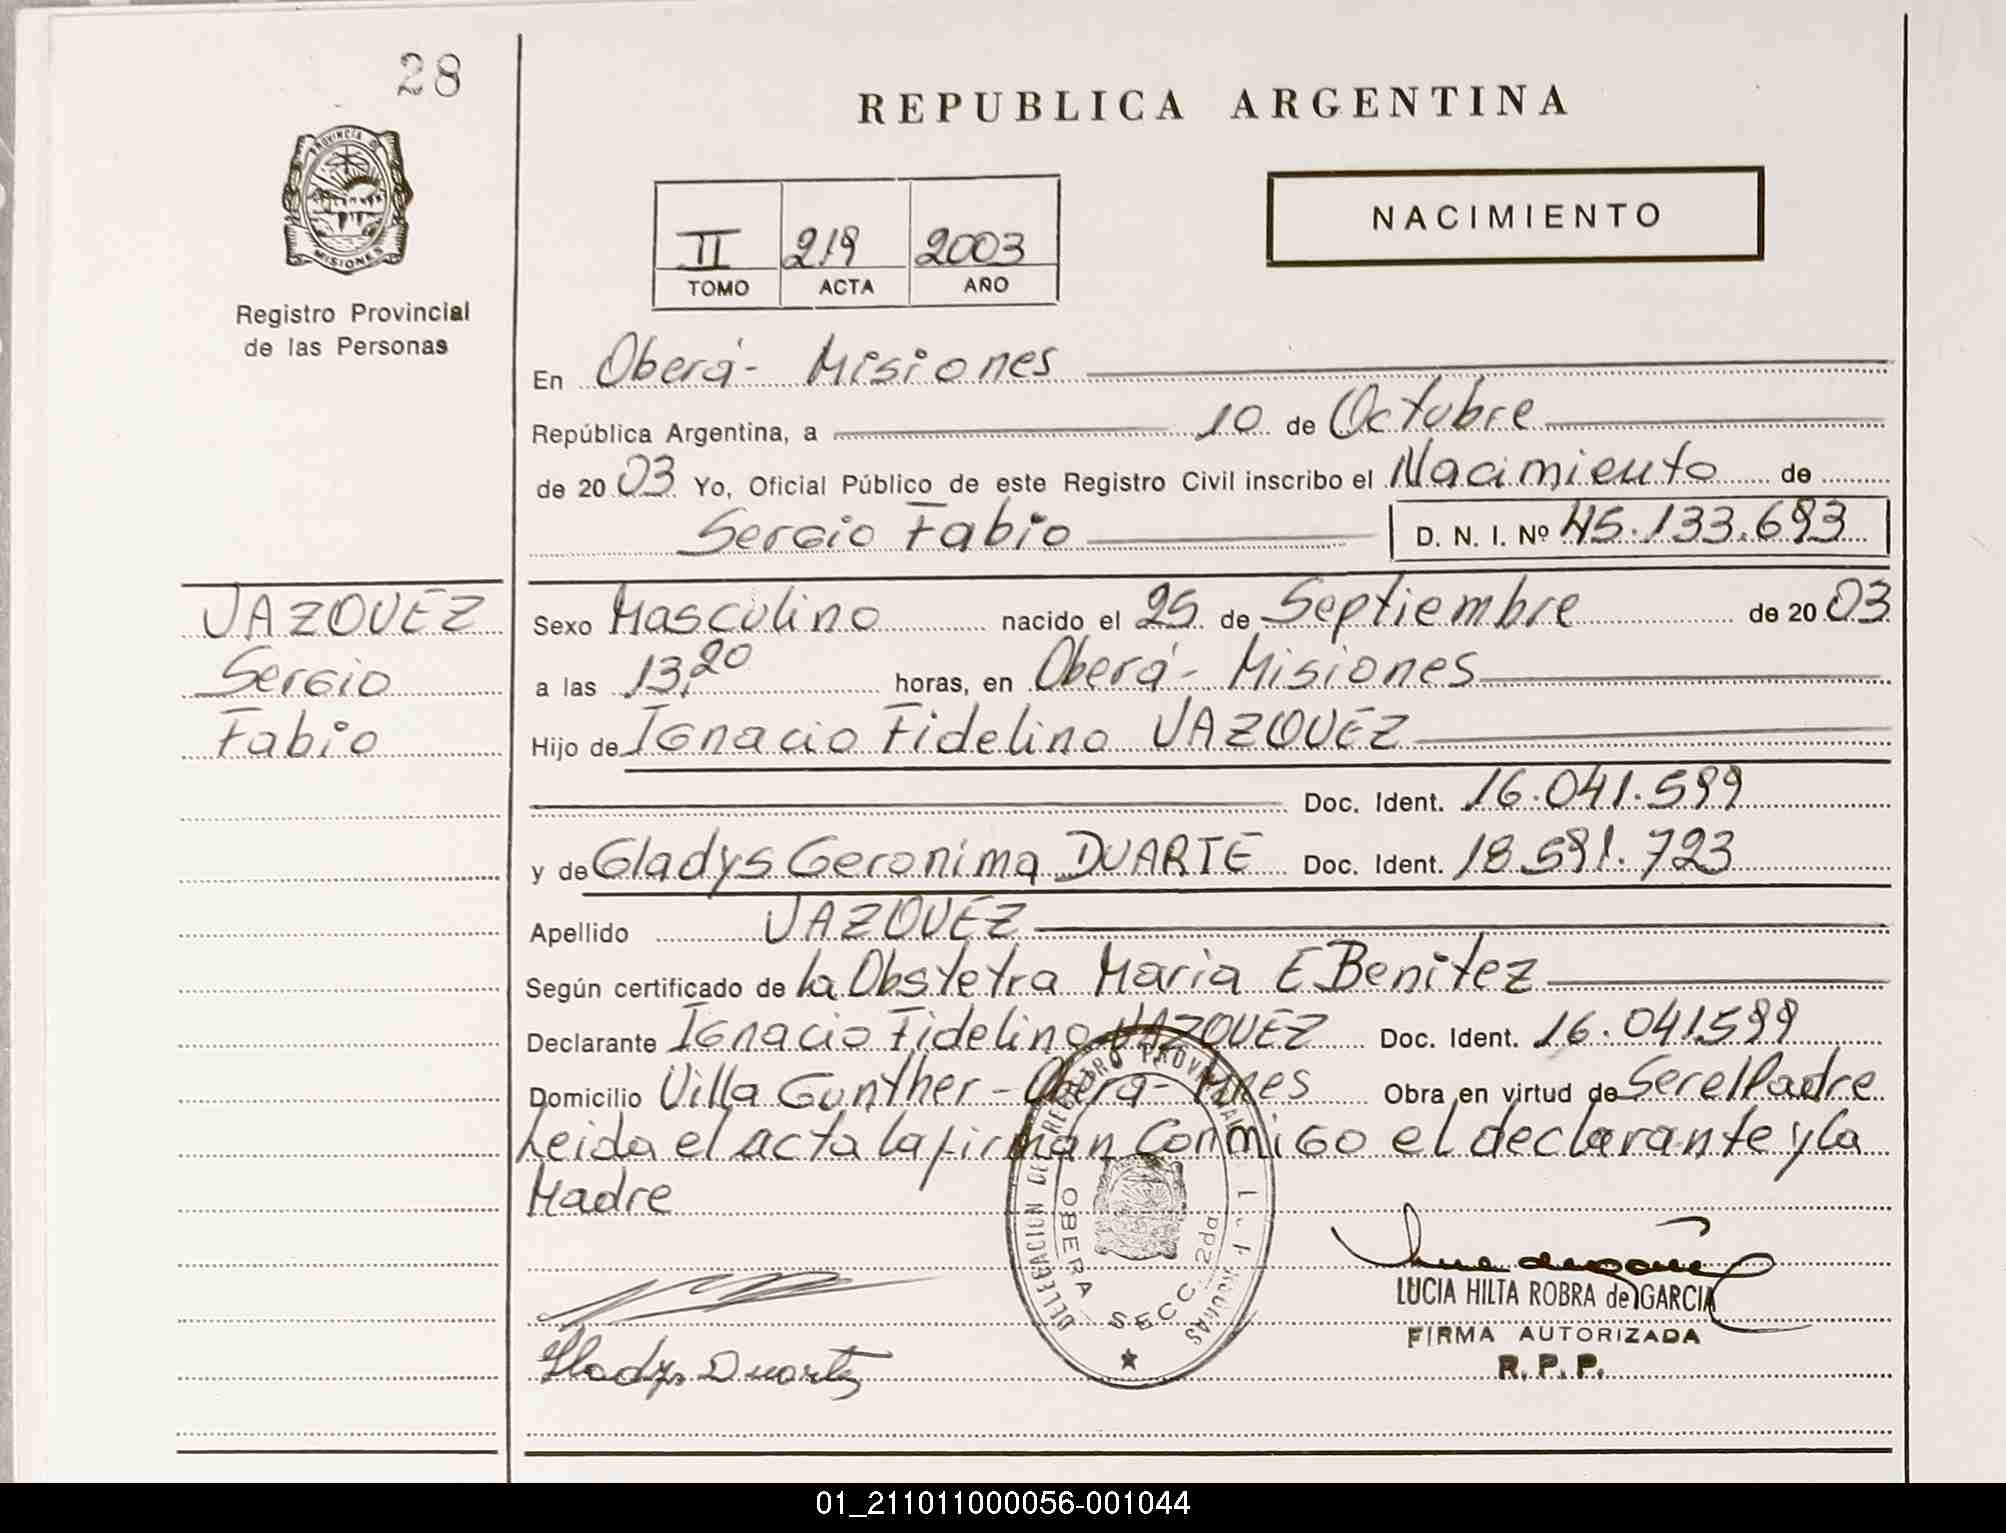 28
REPUBLICA ARGENTINA
PROVINCIA DE MISIONES
Registro Provincial
de las Personas
II 219 2003
TOMO ACTA AÑO
NACIMIENTO
En Oberá - Misiones
República Argentina, a 10 de Octubre
de 2003 Yo, Oficial Público de este Registro Civil inscribo el Nacimiento de
Sergio Fabio D. N. I. Nº 45.133.693
VAZQUEZ
Sergio
Fabio
Sexo Masculino nacido el 25 de Septiembre de 2003
a las 13,20 horas, en Oberá - Misiones
Hijo de Ignacio Fidelino VAZQUEZ
Doc. Ident. 16.041.599
y de Gladys Geronima DUARTE Doc. Ident. 18.591.723
Apellido VAZQUEZ
Según certificado de la Obstetra Maria E Benitez
Declarante Ignacio Fidelino VAZQUEZ Doc. Ident. 16.041.599
Domicilio Villa Gunther - Oberá - Mnes Obra en virtud de Ser el Padre
Leida el acta la firman Conmigo el declarante y la
Madre
DELEGACION DE REGISTRO PROVINCIAL DE L. P.
OBERA SECC. 2da
LUCIA HILTA ROBRA de GARCIA
FIRMA AUTORIZADA
R. P. P.
Gladys Duarte
01_211011000056-001044